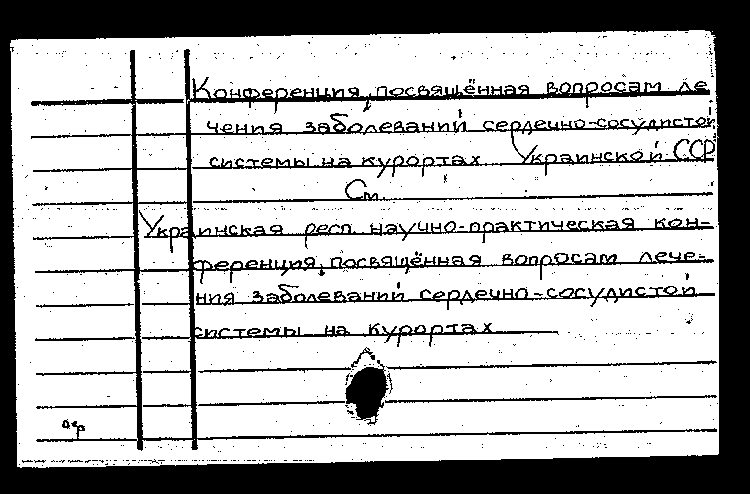 Конференция, посвящённая вопросам ле
чения заболеваний сердечно-сосудистой
системы на курортах Украинской ССР
См.
Украинская респ. научно-практическая кон-
ференция, посвящённая вопросам лече-
ния заболеваний сердечно-сосудистой
системы на курортах